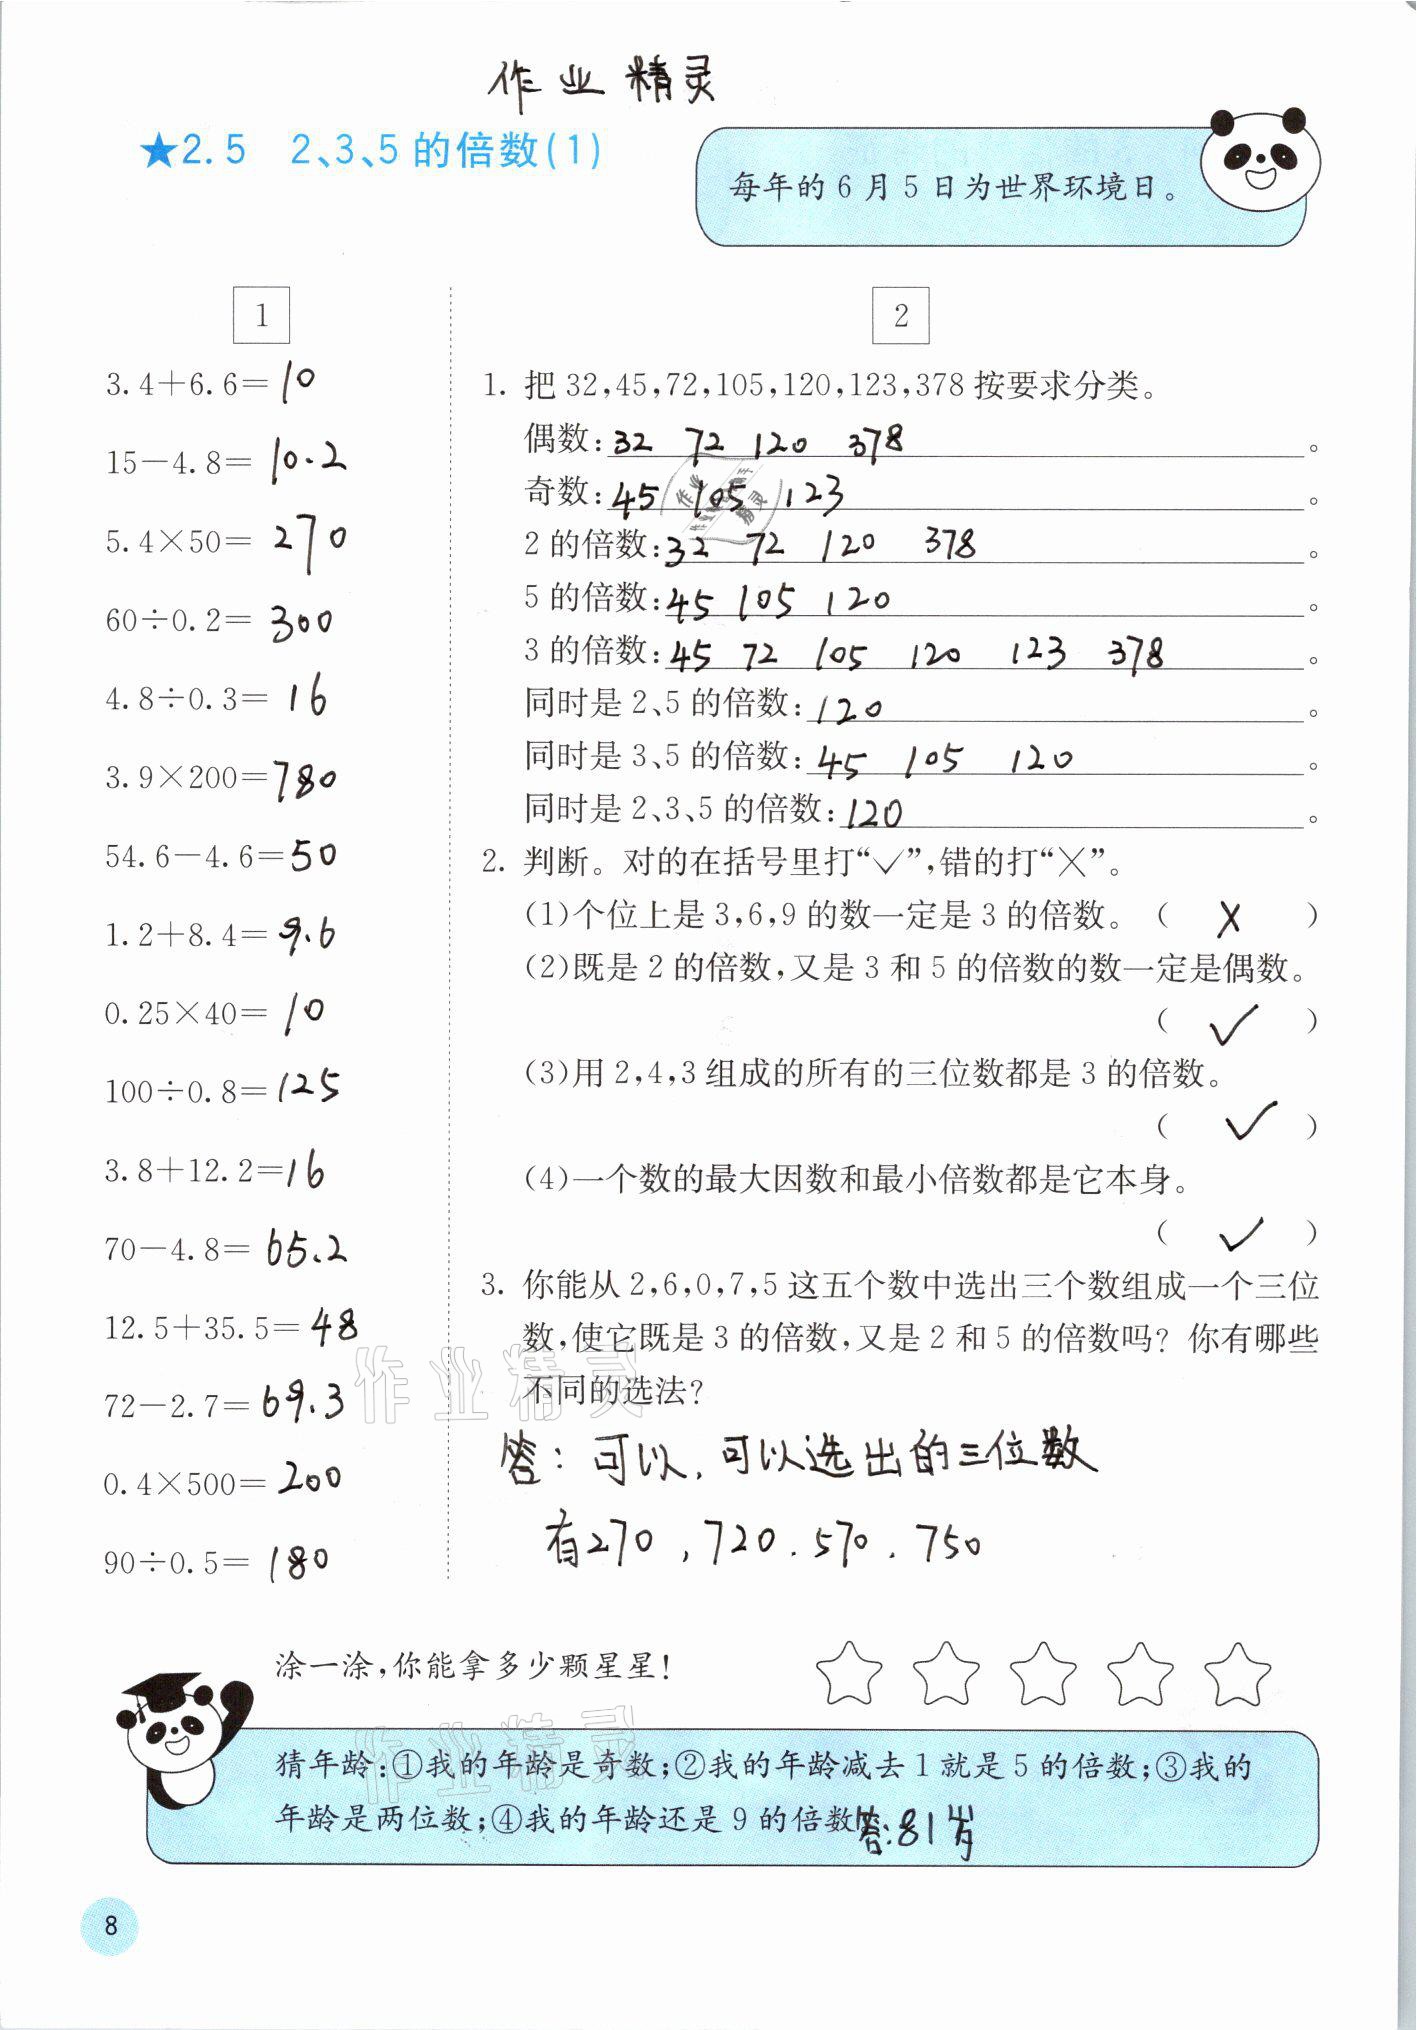 作业精灵
★2.5 2、3、5的倍数(1)
每年的6月5日为世界环境日。
1
3.4+6.6=10
15-4.8=10.2
5.4×50=270
60÷0.2=300
4.8÷0.3=16
3.9×200=780
54.6-4.6=50
1.2+8.4=9.6
0.25×40=10
100÷0.8=125
3.8+12.2=16
70-4.8=65.2
12.5+35.5=48
72-2.7=69.3
0.4×500=200
90÷0.5=180
2
1. 把32,45,72,105,120,123,378按要求分类。
偶数:32 72 120 378。
奇数:45 105 123。
2的倍数:32 72 120 378。
5的倍数:45 105 120。
3的倍数:45 72 105 120 123 378。
同时是2、5的倍数:120。
同时是3、5的倍数:45 105 120。
同时是2、3、5的倍数:120。
2. 判断。对的在括号里打“✓”,错的打“╳”。
(1)个位上是3,6,9的数一定是3的倍数。( X )
(2)既是2的倍数,又是3和5的倍数的数一定是偶数。
( ✓ )
(3)用2,4,3组成的所有的三位数都是3的倍数。
( ✓ )
(4)一个数的最大因数和最小倍数都是它本身。
( ✓ )
3. 你能从2,6,0,7,5这五个数中选出三个数组成一个三位
数,使它既是3的倍数,又是2和5的倍数吗?你有哪些
不同的选法?
答:可以,可以选出的三位数
有270,720.570.750
作业精灵
涂一涂,你能拿多少颗星星!
作业精灵
猜年龄:①我的年龄是奇数;②我的年龄减去1就是5的倍数;③我的
年龄是两位数;④我的年龄还是9的倍数 答:81岁
8